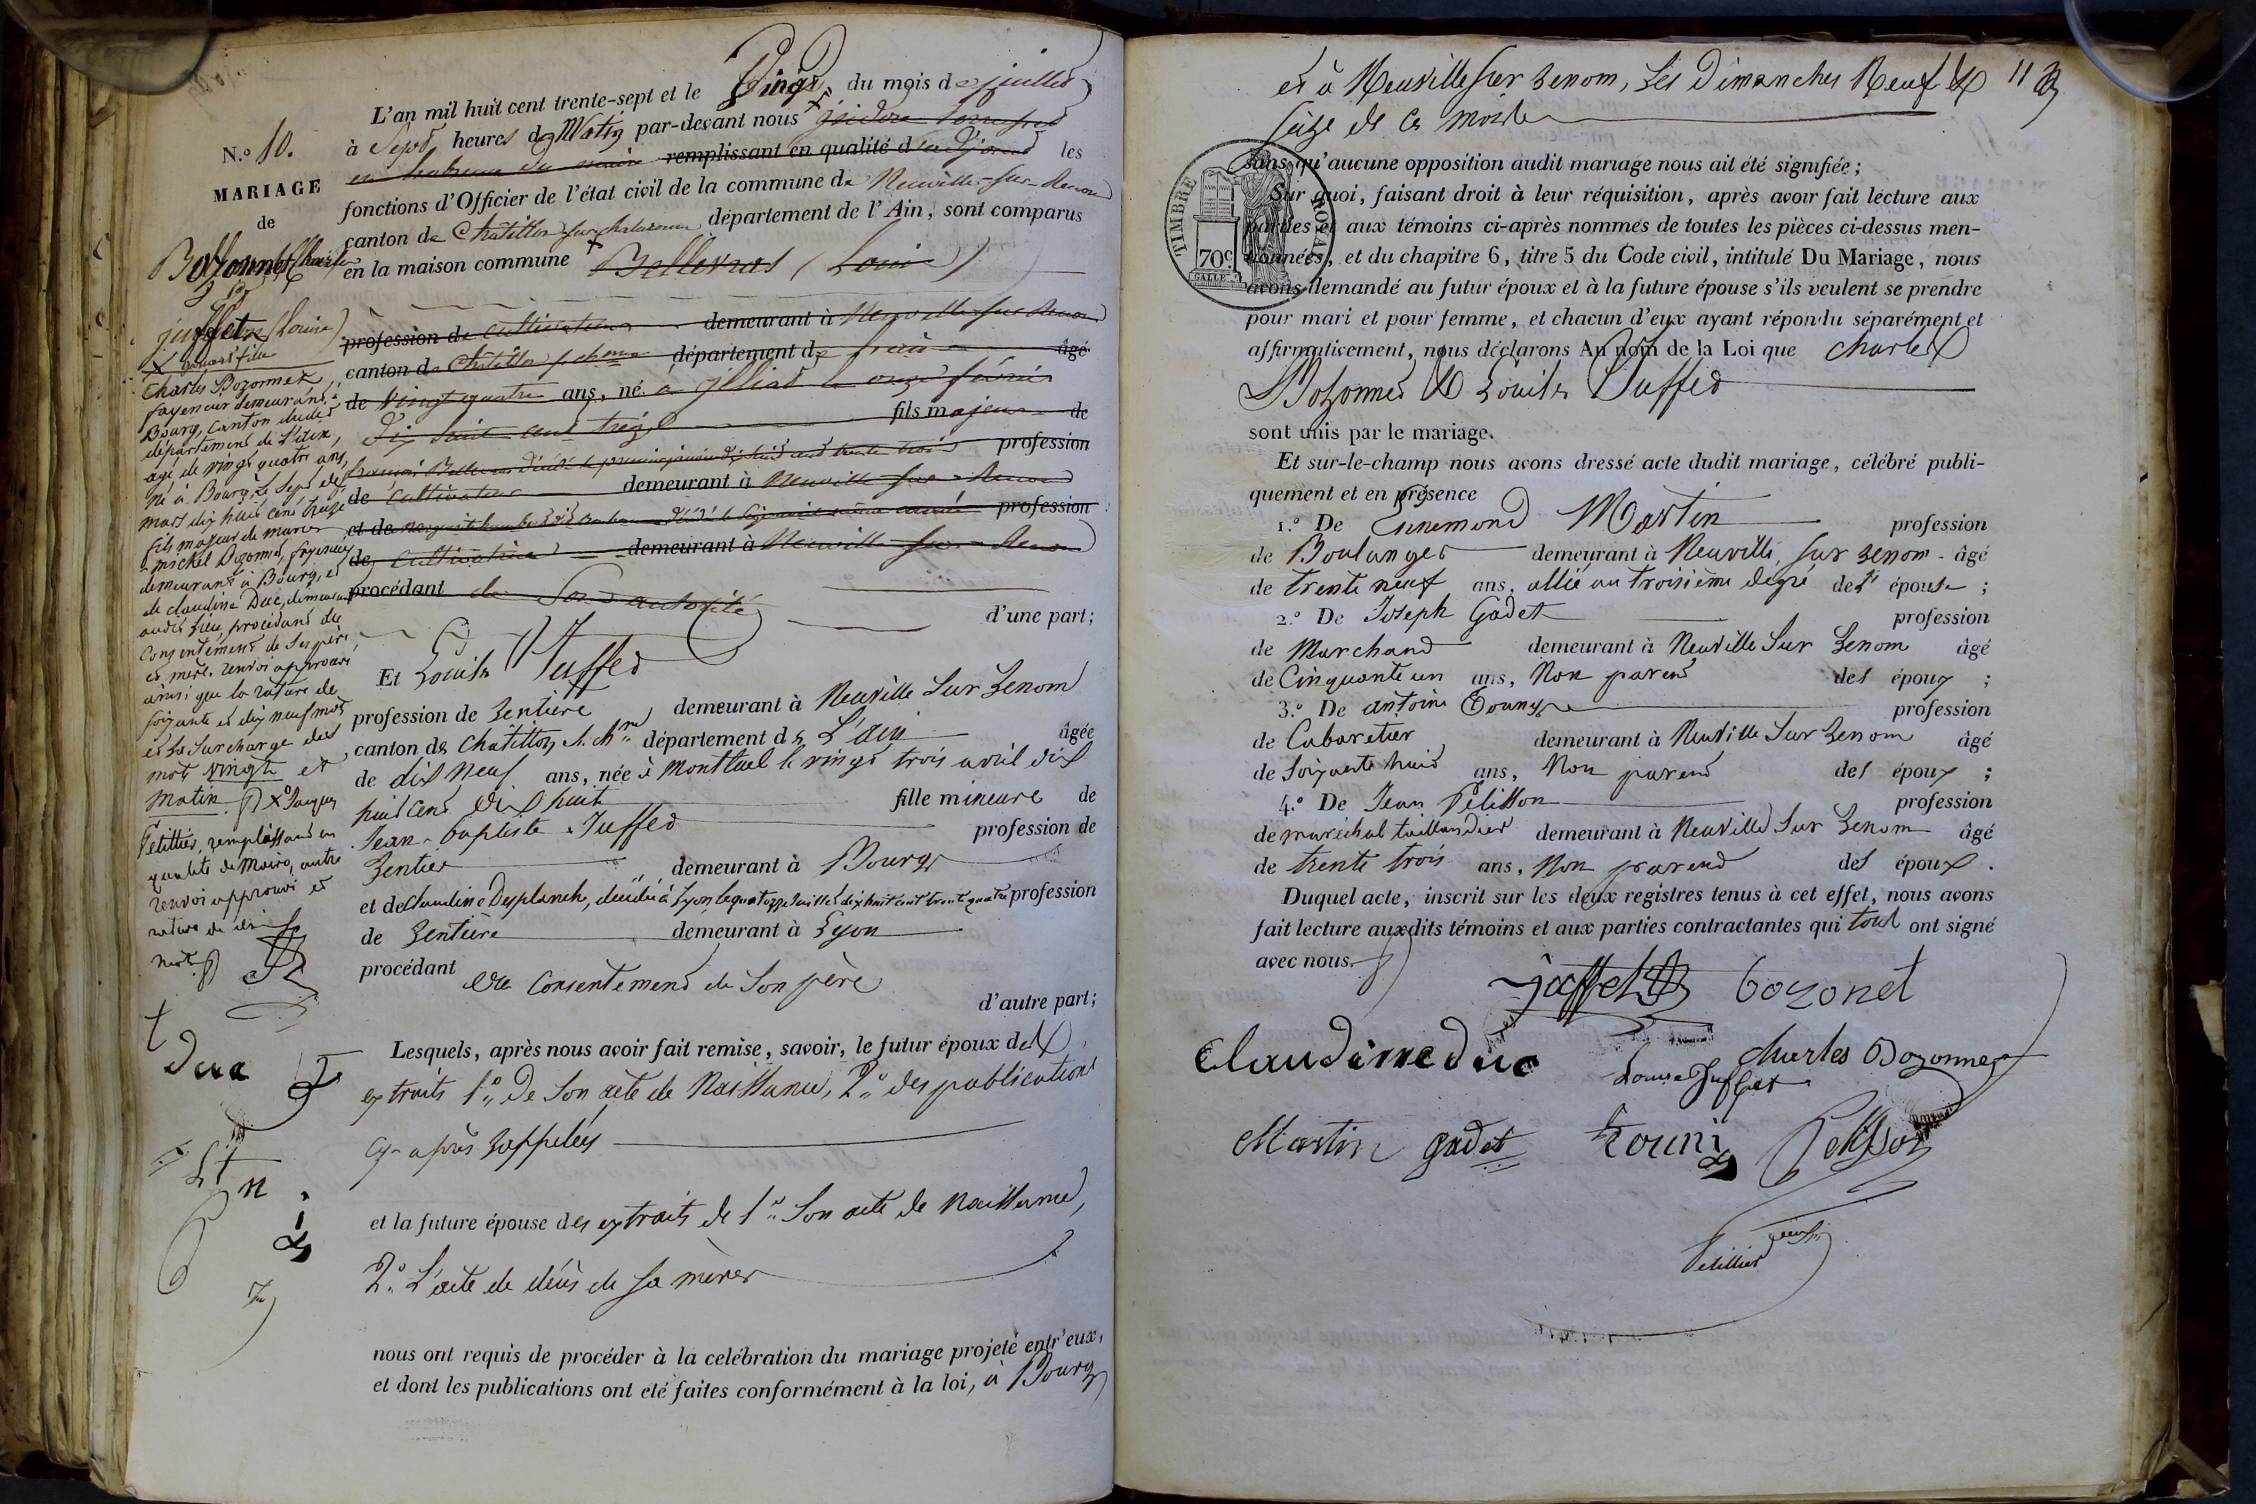 N.º 10.
MARIAGE
de
Bozonnet Charles
juffet (Louise)
Charles Bozonnet
fayencier demeurant à
Bourg, canton dudit
département de L'ain,
agé de vingt quatre ans,
né à Bourg le sept de
mars dix huit cent treize
fils majeur de
michel Bozonnet, fayencier
demeurant à Bourg, et
de claudine Duc, demeurant
audit lieu, procédant du
consentement de ses père
et mère. renvoi approuvé
ainsi que la rature de
soixante et dix neuf mots
et la surcharge des
mots vingt et
matin
Jacques
Pétillier, remplissant en
qualité de Maire, autre
renvoi approuvé et
rature de dix
mots
duc
L'an mil huit cent trente-sept et le Vingt du mois de juillet
à Sept heures du Matin par-devant nous isidore
remplissant en qualité d'adjoint les
fonctions d'Officier de l'état civil de la commune de Neuville-sur-Renom
canton de Chatillon sur chalaronne département de l'Ain, sont comparus
en la maison commune Bellevras (Louis)
profession de Cultivateur demeurant à Neuville sur Renom
canton de Chatillon département de âgé
de Vingt quatre ans, né à illiat le onze février
dix huit cent treize fils majeur de
françois Bellevras décédé le premier janvier dix huit cent trente trois profession
de Cultivateur demeurant à Neuville sur Renom
et de profession
de Cultivatrice demeurant à Neuville sur Renom
procédant de Son autorité
d'une part;
Et Louise Juffet
profession de Rentière demeurant à Neuville Sur Renom
canton de Chatillon s. ch.ne département de L'ain âgée
de dix Neuf ans, née à Montluel le vingt trois avril dix
huit cent dix huit fille mineure de
Jean-Baptiste Juffet profession de
Rentier demeurant à Bourg
et de Claudine Desplanche, décédée à Lyon le quatorze Juillet dix huit cent trente quatre profession
de Rentière demeurant à Lyon
procédant du Consentement de Son père
d'autre part;
Lesquels, après nous avoir fait remise, savoir, le futur époux des
extraits 1º De Son acte de Naissance, 2º des publications
cy-après rappelées
et la future épouse des extraits de 1º Son acte de Naissance,
2º L'acte de décès de sa mère
nous ont requis de procéder à la celébration du mariage projeté entr'eux,
et dont les publications ont eté faites conformément à la loi, à Bourg
et à Neuville sur Renom, Les Dimanches Neuf & 11
seize de ce mois
TIMBRE ROYAL
70c
sans qu'aucune opposition audit mariage nous ait été signifiée;
Sur quoi, faisant droit à leur réquisition, après avoir fait lecture aux
parties et aux témoins ci-après nommés de toutes les pièces ci-dessus men-
tionnées, et du chapitre 6, titre 5 du Code civil, intitulé Du Mariage, nous
avons demandé au futur époux et à la future épouse s'ils veulent se prendre
pour mari et pour femme, et chacun d'eux ayant répondu séparément et
affirmativement, nous déclarons Au nom de la Loi que Charles
Bozonnet & Louise Juffet
sont unis par le mariage.
Et sur-le-champ nous avons dressé acte dudit mariage, célébré publi-
quement et en présence
1.º De Ennemond Martin profession
de Boulanger demeurant à Neuville sur Renom âgé
de trente neuf ans, allié au troisième degré de l'épouse;
2.º De Joseph Gadet profession
de Marchand demeurant à Neuville Sur Renom âgé
de Cinquante un ans, Non parent des époux;
3.º De antoine Touny profession
de Cabaretier demeurant à Neuville Sur Renom âgé
de Soixante huit ans, Non parent des époux;
4.º De Jean Pélisson profession
de maréchal taillandier demeurant à Neuville Sur Renom âgé
de trente trois ans, Non parent des époux.
Duquel acte, inscrit sur les deux registres tenus à cet effet, nous avons
fait lecture auxdits témoins et aux parties contractantes qui tous ont signé
avec nous.
juffet bozonet
claudine duc Louise Juffet Charles Bozonnet
Martin gadet touni Pelisson
Petillier